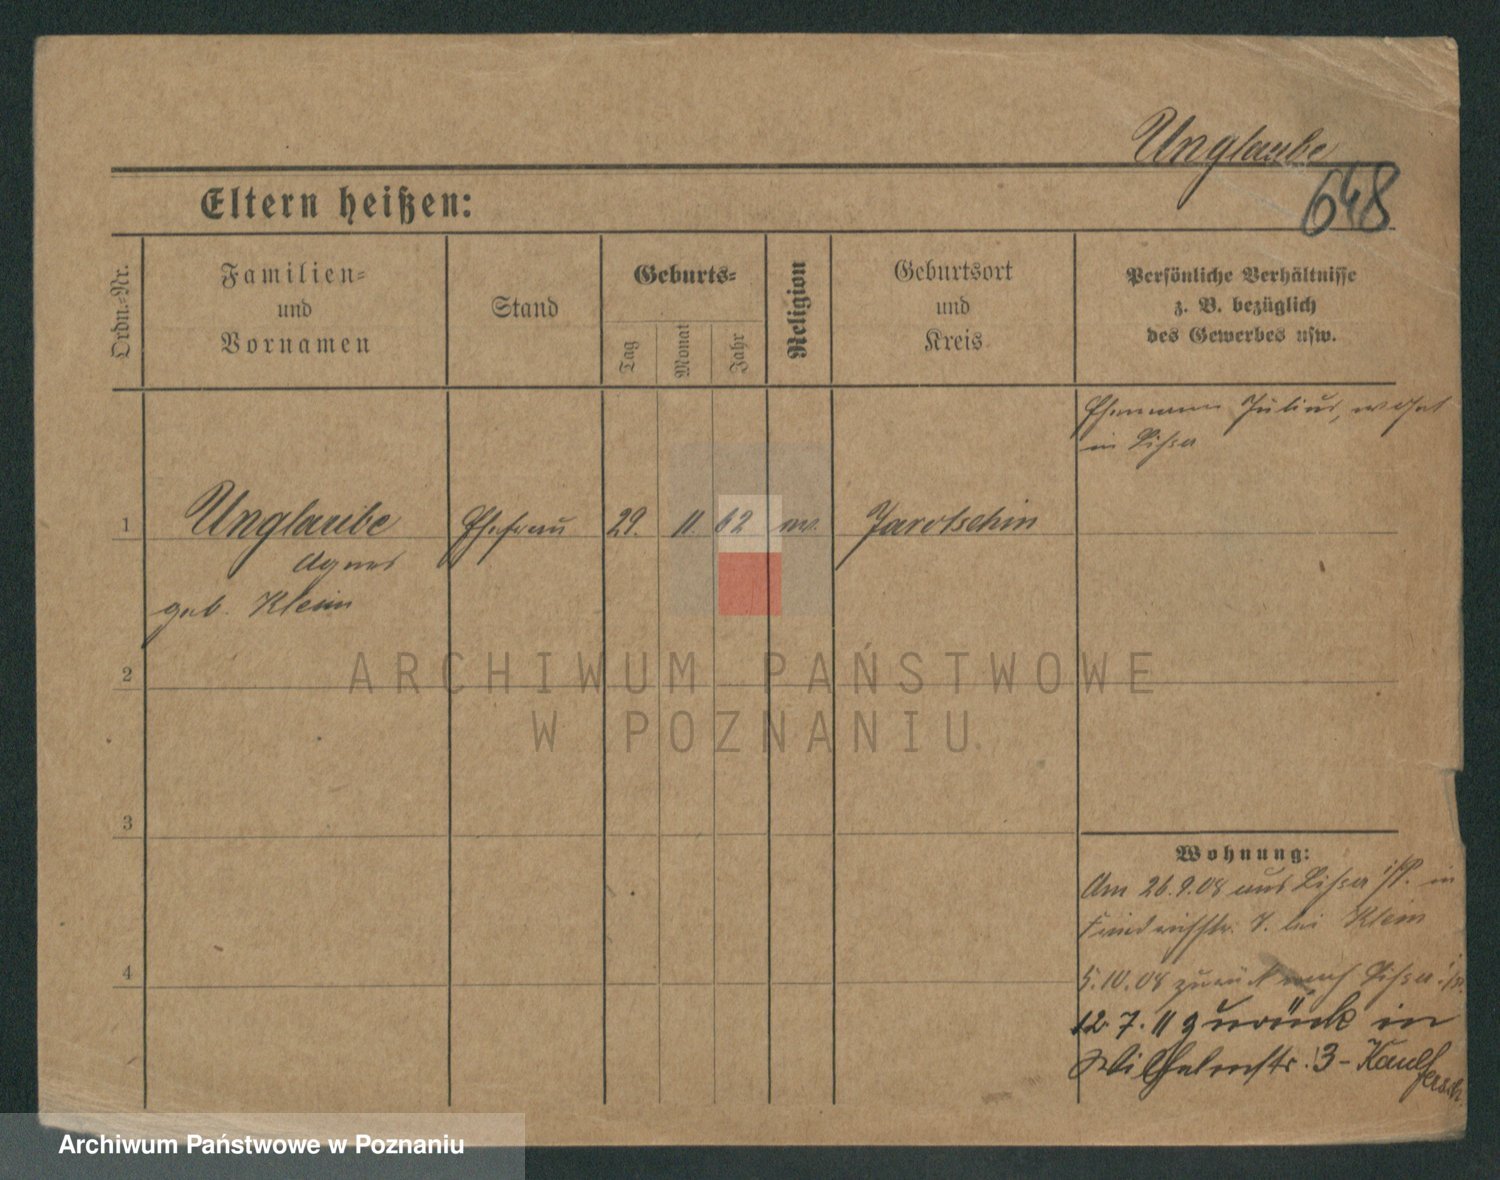 Unglaube
648
Eltern heißen:
Ordn.-Nr.
Familien-
und
Vornamen
Stand
Geburts-
Tag
Monat
Jahr
Religion
Geburtsort
und
Kreis
Persönliche Verhältnisse
z. B. bezüglich
des Gewerbes usw.
Ehemann Julius, wohnt
in Lissa
1
Unglaube
Agnes
geb. Klein
Ehefrau
29.
11.
62
Jarotschin
2
3
4
Wohnung:
Am 26.9.08 aus Lissa i/P. in
Friedrichstr. 7. bei Klein
5.10.08 zurück nach Lissa i/P.
12.7.11 zurück in
Wilhelmstr. 3 -
ARCHIWUM PAŃSTWOWE
W POZNANIU
Archiwum Państwowe w Poznaniu